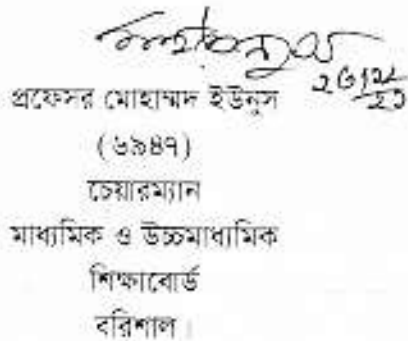 প্রফেসর মোহাম্মদ ইউনুস
(৬৯৪৭)
চেয়ারম্যান
মাধ্যমিক ও উচ্চমাধ্যমিক
শিক্ষাবোর্ড
বরিশাল।